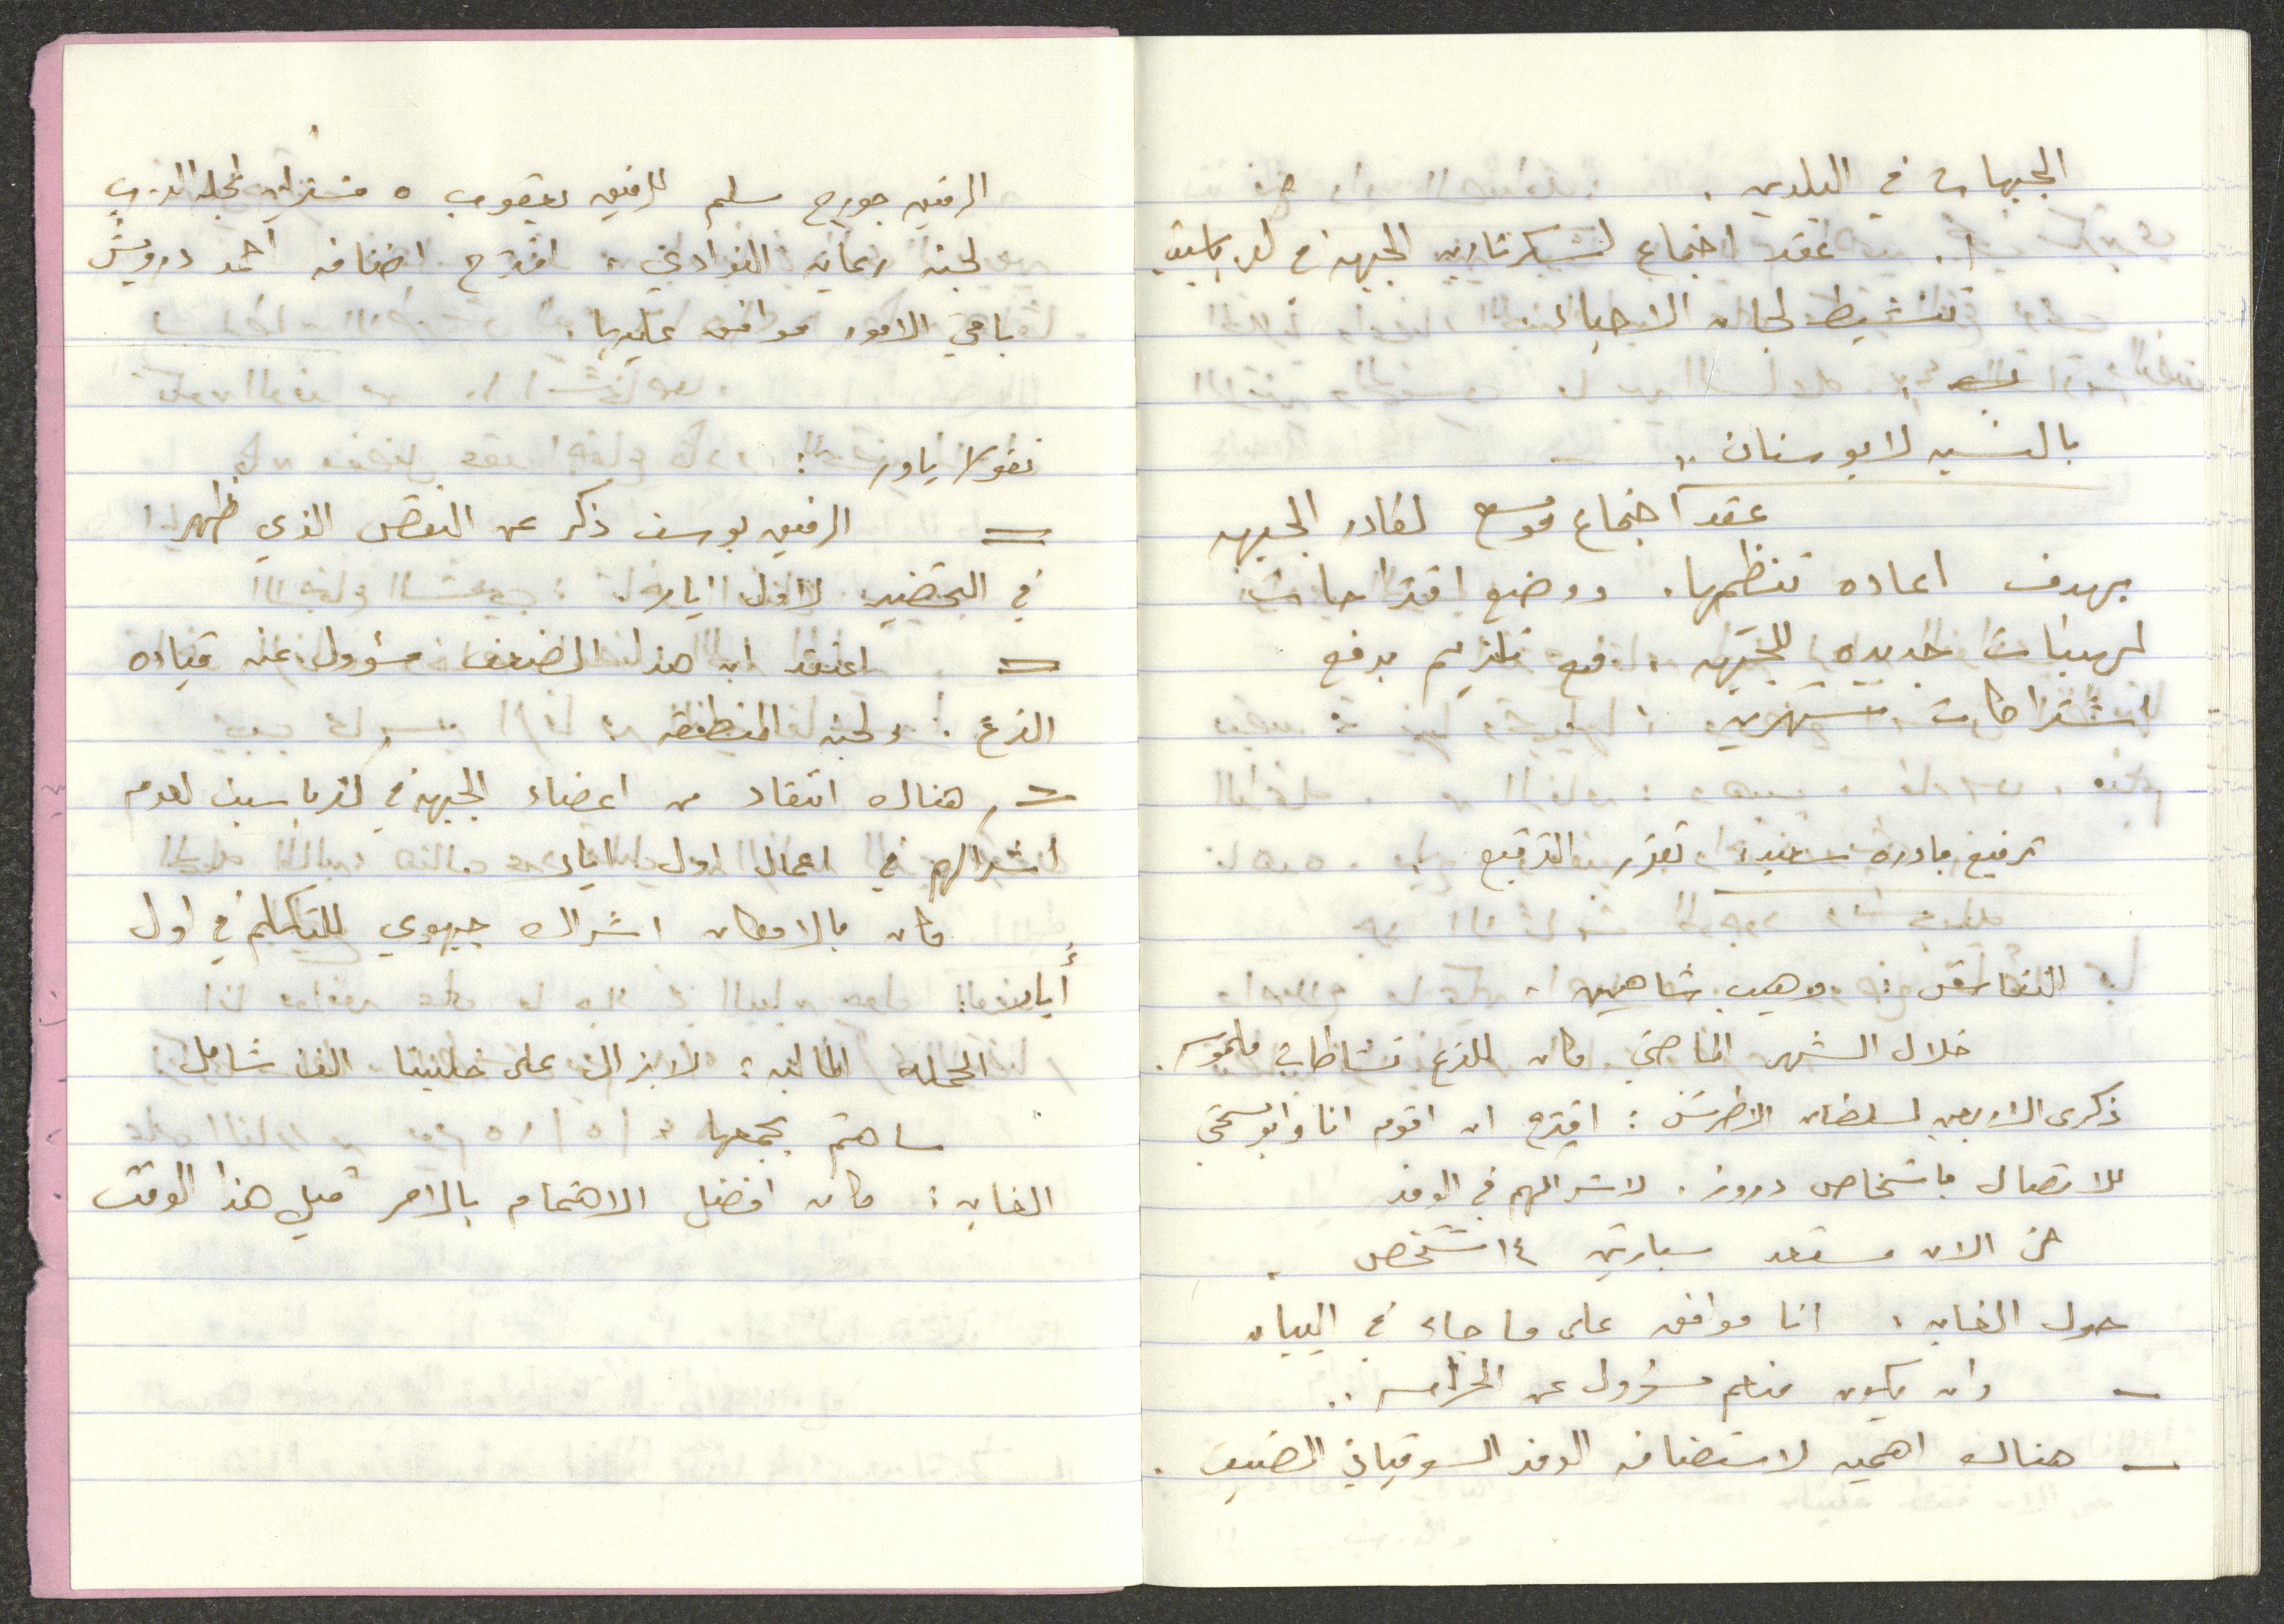 الجبهات في البلدين .
1. عقد اجتماع لسكرتارية الجبهة في كفرياسيف
تنشيط لجان الاحياء .
بالنسبه لابو سنان ..
عقد اجتماع موسع لكادر الجبهه
بهدف اعاده تنظيمها . ووضع اقتراحات
لهيئات جديده للجبهه ، مع تلزيم بدفع
اشتراكات شهريه .
ترفيع بادره سعيد : تقرر الترفيع .
النقاش : وهيب شاهين .
خلال الشهر الماضي كان للفرع نشاطات ملموسه .
ذكرى الاربعين لسلطان الاطرش : اقترح ان اقوم انا وابو
للاتصال باشخاص دروز . لاشراكهم في الوفد
من الان مستعد سيارتين ١٤ شخص .
حول الغابه : انا موافق على ما جاء في البيان
– وان يكون منكم مسؤول عن الحراسه ..
– هناك اهميه لاستضافه الوفد السوفياتي الضيف .
الرفيق جورج سلم الرفيق يعقوب ٥ مشتركين لمجلة الدرب
لجنه رعاية النوادي ، اقترح اضافه احمد درويش
باقي الامور موافق عليها .
نقولا ياور :
= الرفيق يوسف ذكر عن النقص الذي ظهر
في التحضير لاول ايار .
= اعتقد ان هذا الضعف مسؤول عنه قياده
الفرع . ولجنه المنطقه .
= هناك انتقاد من اعضاء الجبهه في كفرياسيف لعدم
اشراكهم في اعمال اول ايار
كان بالامكان اشراك جبهوي للتكلم في اول
أيار .
الحمله الماليه : لا يزال على خليتنا الف شاقل .
ساهتم بجمعها
الغابه : كان افضل الاهتمام بالامر قبل هذا الوقت